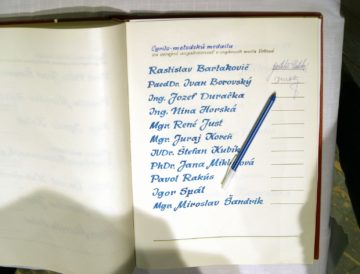 Cyrilo-metodská medaila
Rastislav Bartakovič
PaedDr. Ivan Borovský
Ing. Jozef Duračka
Ing. Nina Horská
Mgr. René Just
Mgr. Juraj Koreň
JUDr. Štefan Kubík
PhDr. Jana
Pavol Rakús
Igor Spál
Mgr. Miroslav Šandrik